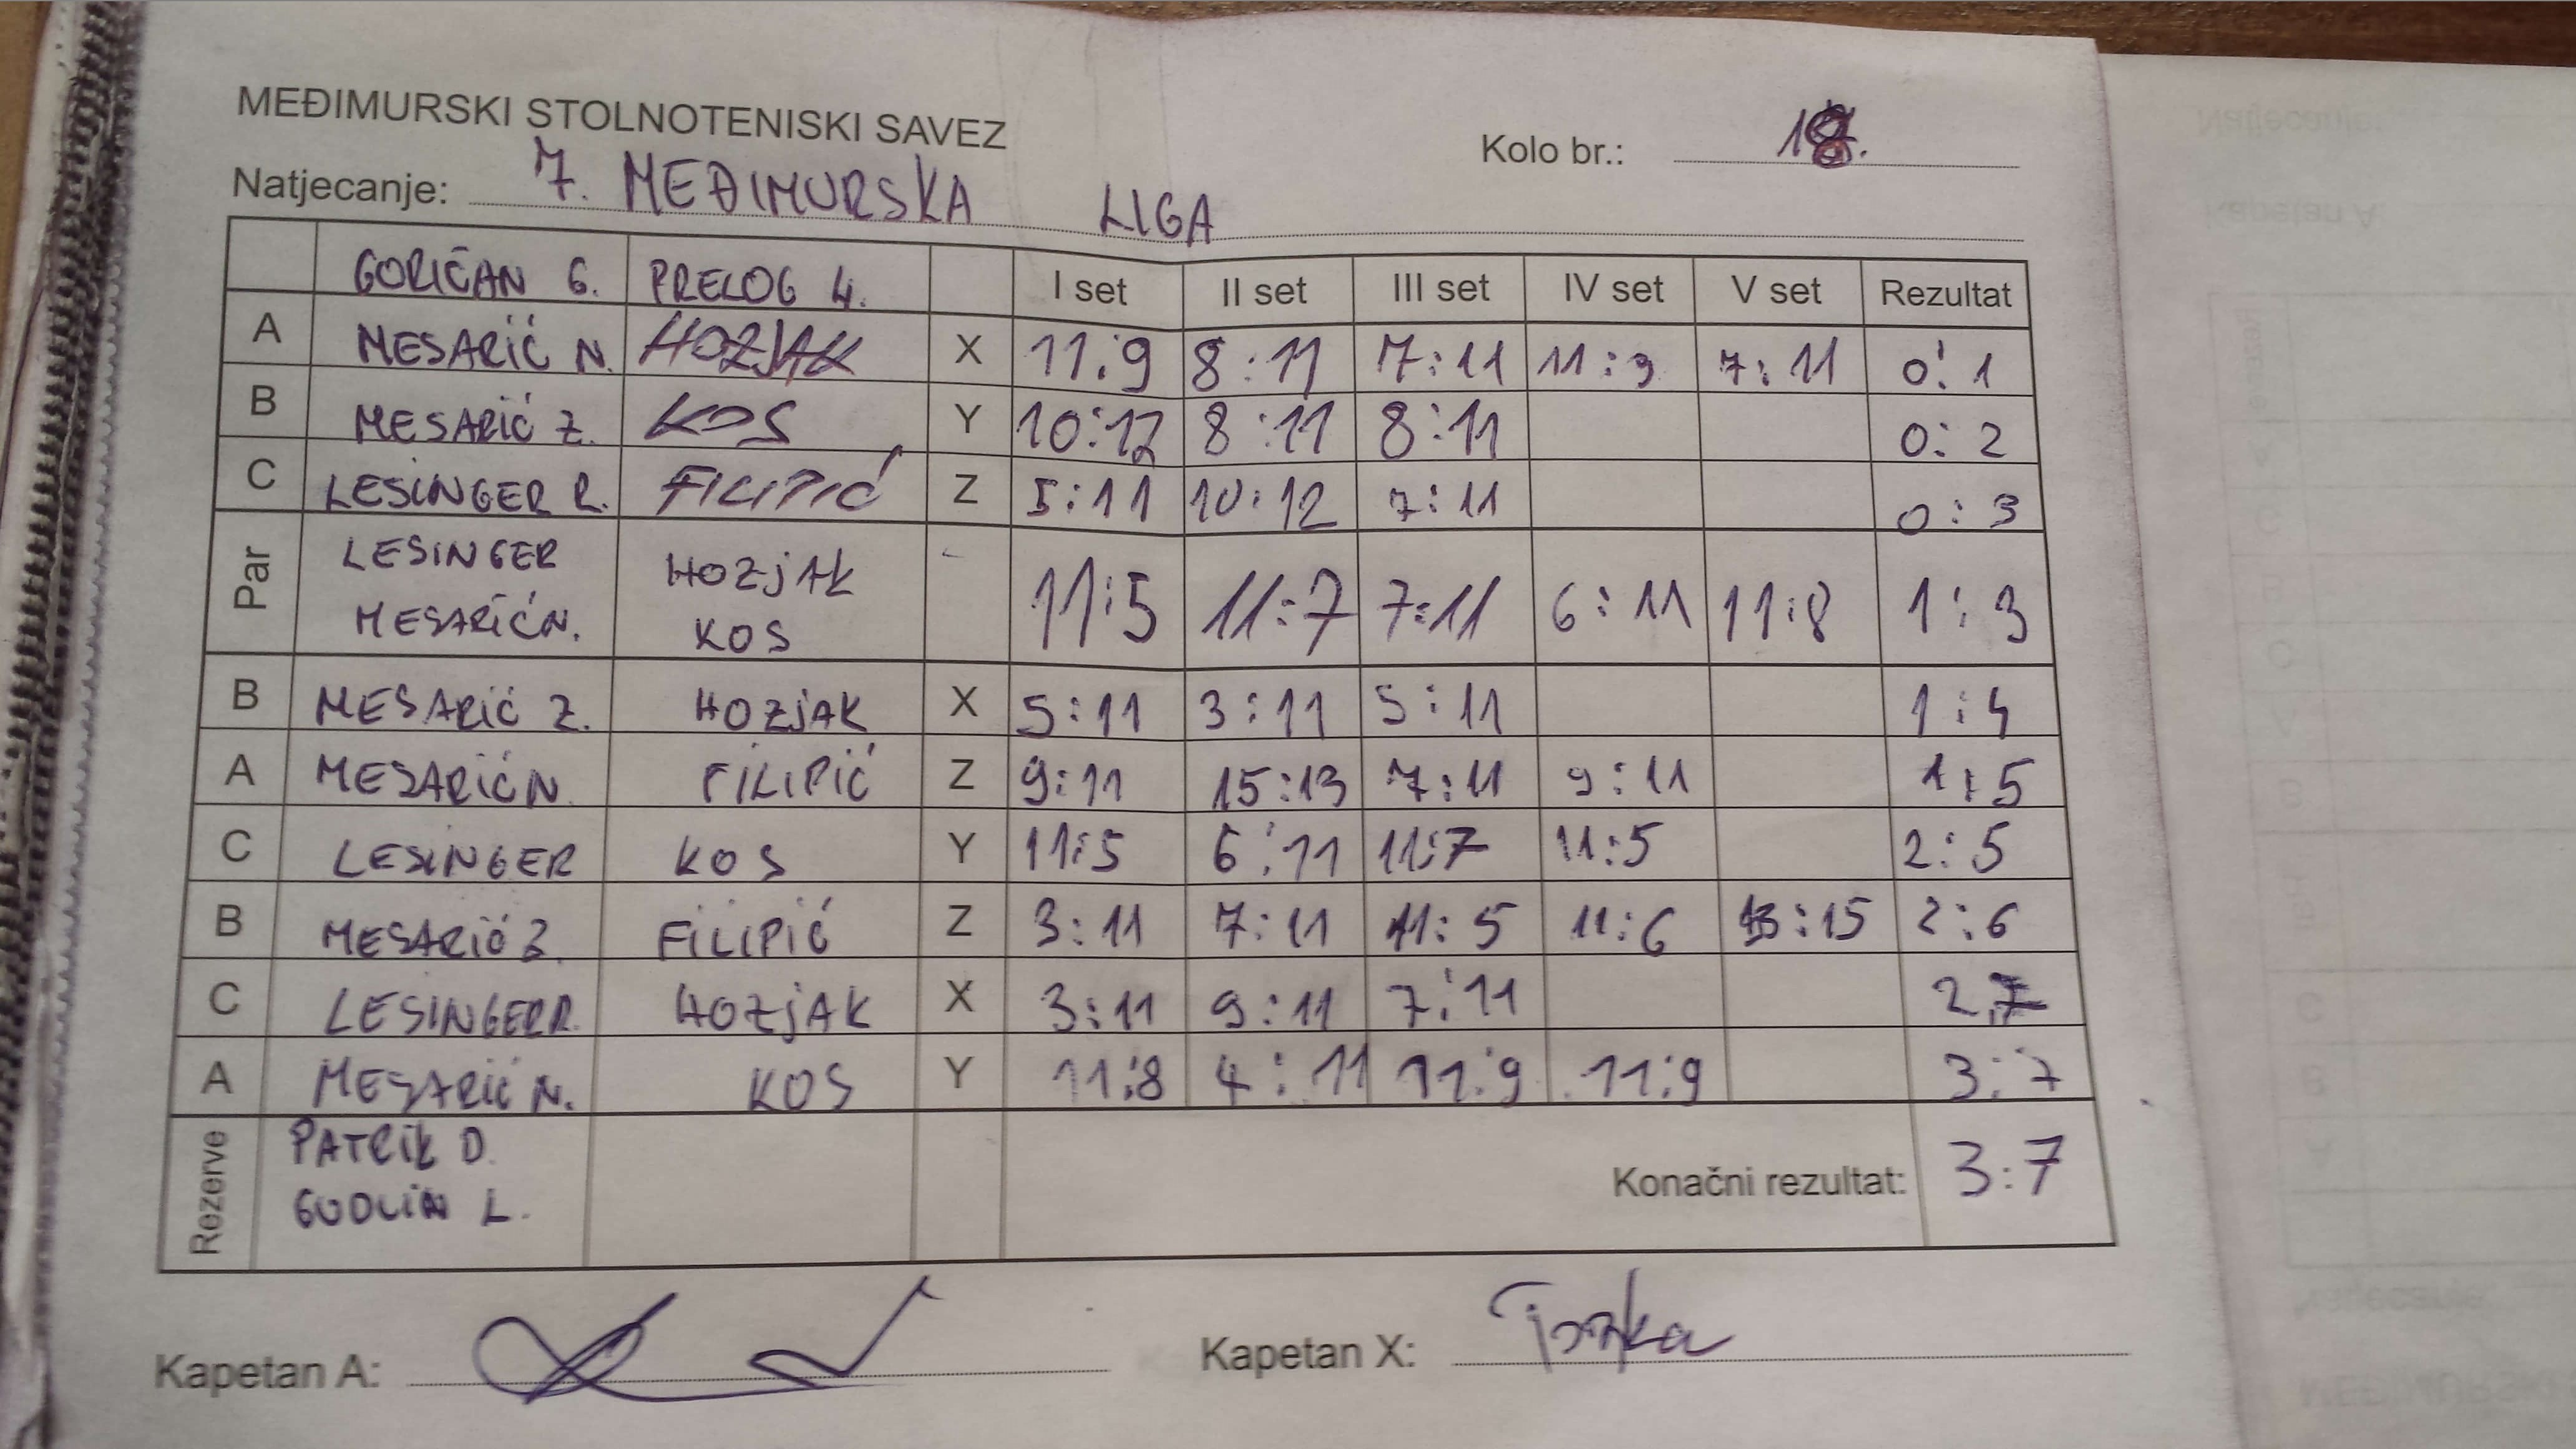 MEĐIMURSKI STOLNOTENISKI SAVEZ
Kolo br.: 18.
Natjecanje: 7. MEĐIMURSKA LIGA
GORIČAN 6. PRELOG 4. I set II set III set IV set V set Rezultat
A MESARIĆ N. HOZJAK X 11:9 8:11 7:11 11:9 7:11 0:1
B MESARIĆ Z. KOS Y 10:12 8:11 8:11 0:2
C LESINGER R. FILIPIĆ Z 5:11 10:12 7:11 0:3
Par LESINGER MESARIĆ N. HOZJAK KOS 11:5 11:7 7:11 6:11 11:8 1:3
B MESARIĆ Z. HOZJAK X 5:11 3:11 5:11 1:4
A MESARIĆ N. FILIPIĆ Z 9:11 15:13 7:11 9:11 1:5
C LESINGER KOS Y 11:5 6:11 11:7 11:5 2:5
B MESARIĆ Z. FILIPIĆ Z 3:11 7:11 11:5 11:6 13:15 2:6
C LESINGER R. HOZJAK X 3:11 9:11 7:11 2:7
A MESARIĆ N. KOS Y 11:8 4:11 11:9 11:9 3:7
Rezerve PATRIK D.
GUDLIN L.
Konačni rezultat: 3:7
Kapetan A:
Kapetan X: